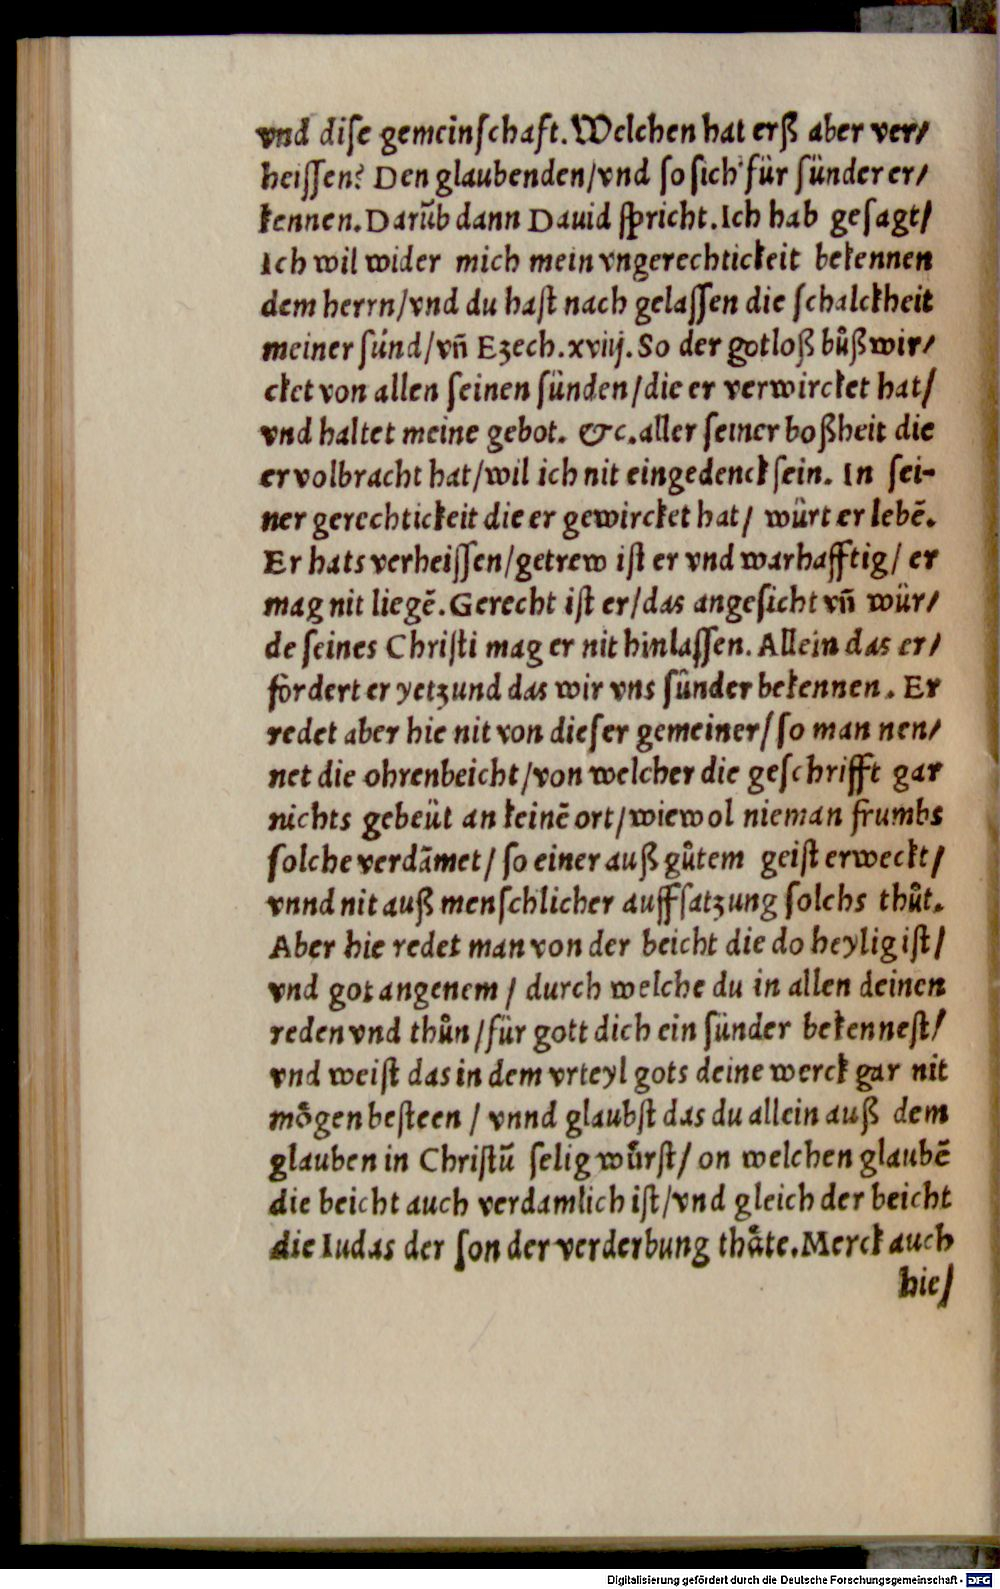 vnd diſe gemeinſchaft. Welchen hat erß aber ver/
heiſſen? Den glaubenden/vnd ſo ſich für ſünder er/
kennen. Darūb dann Dauid ſpricht. Ich hab geſagt/
Ich wil wider mich mein vngerechtickeit bekennen
dem herrn/vnd du haſt nach gelaſſen die ſchalckheit
meiner ſünd/vñ Ezech. xviij. So der gotloß bůß wir/
cket von allen ſeinen ſünden/die er verwircket hat/
vnd haltet meine gebot. &c. aller ſeiner boßheit die
er volbracht hat/wil ich nit eingedenck ſein. In ſei-
ner gerechtickeit die er gewircket hat/ würt er lebē.
Er hats verheiſſen/getrew iſt er vnd warhafftig/ er
mag nit liegē. Gerecht iſt er/das angeſicht vñ wür/
de ſeines Chriſti mag er nit hinlaſſen. Allein das er/
fordert er yetzund das wir vns ſünder bekennen. Er
redet aber hie nit von dieſer gemeiner/ſo man nen/
net die ohrenbeicht/von welcher die geſchrifft gar
nichts gebeüt an keinē ort/wiewol nieman frumbs
ſolche verdāmet/ ſo einer auß gůtem geiſt erweckt/
vnnd nit auß menſchlicher auffſatzung ſolchs thůt.
Aber hie redet man von der beicht die do heylig iſt/
vnd got angenem / durch welche du in allen deinen
reden vnd thůn/für gott dich ein ſünder bekenneſt/
vnd weiſt das in dem vrteyl gots deine werck gar nit
mögen beſteen / vnnd glaubſt das du allein auß dem
glauben in Chriſtū ſelig würſt/ on welchen glaubē
die beicht auch verdamlich iſt/vnd gleich der beicht
die Iudas der ſon der verderbung thäte. Merck auch
hie/
Digitalisierung gefördert durch die Deutsche Forschungsgemeinschaft - DFG